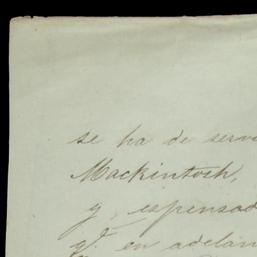 se ha de serv
Mackintosh,
y, espensad
qᵉ en adelan